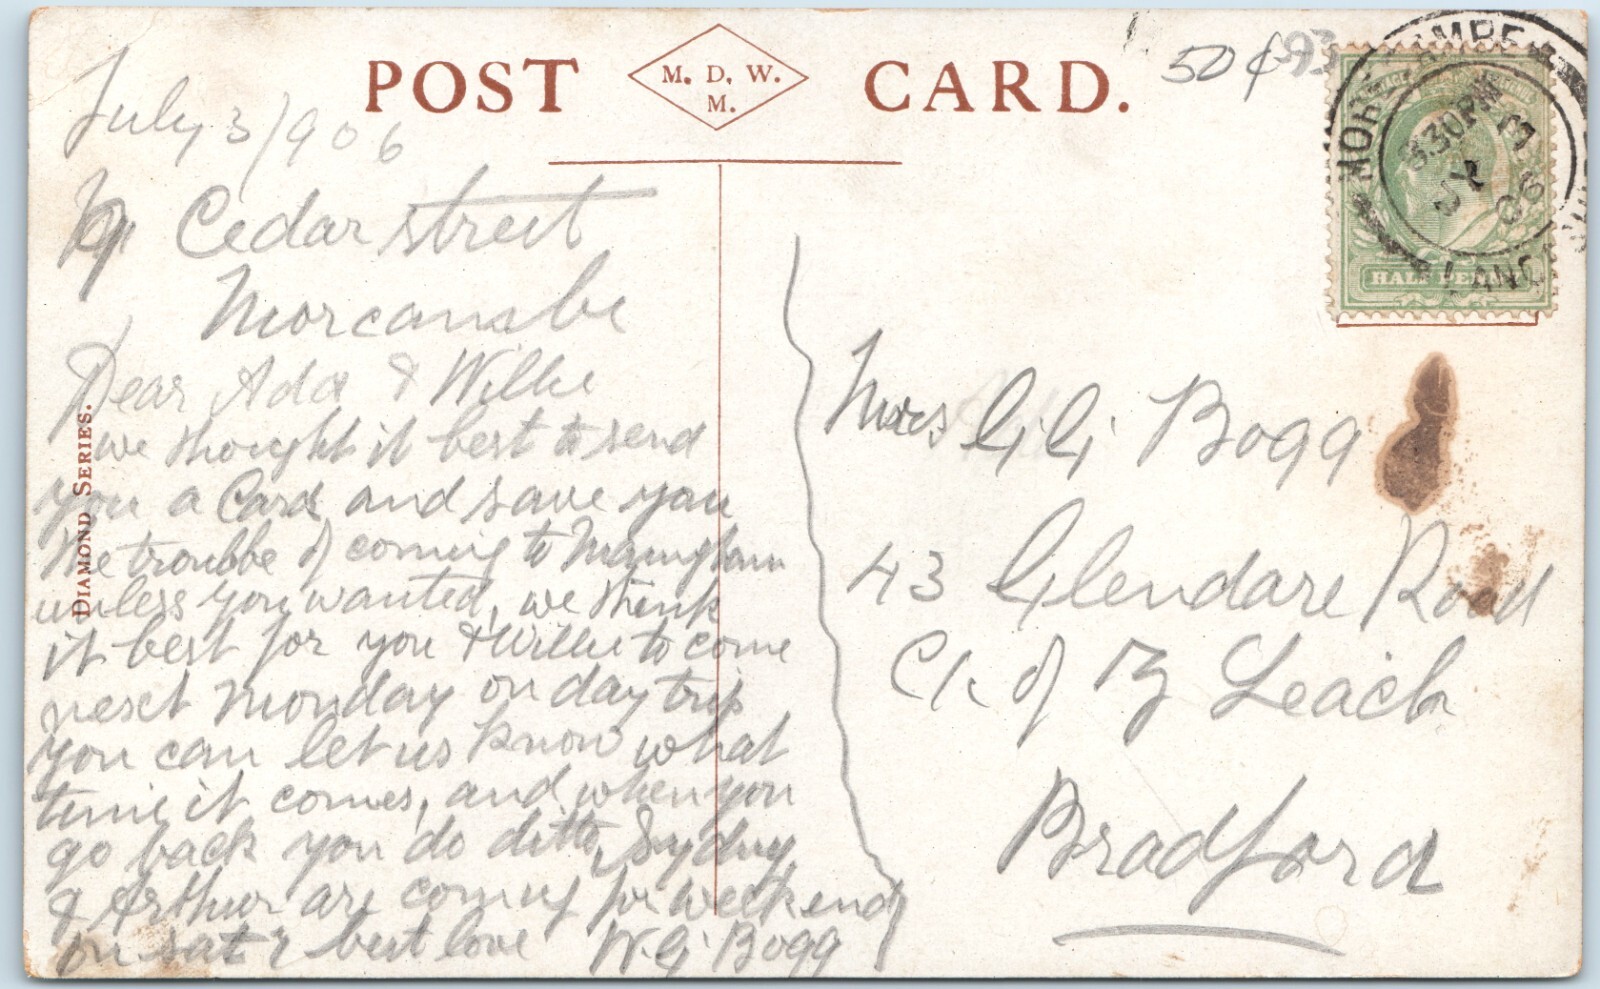 POST CARD.
M. D. W.
M.
50¢
93
MORECAMBE
3.30 PM
JY 3
06
HALF PENNY
DIAMOND SERIES.
July 3/906
Cedar street
Morcambe
Dear Ada & Willie
we thought it best to send
you a Card and save you
the troubbe of coming to Manningham
unless you wanted, we think
it best for you & Willie to come
next Monday on day trip
you can let us know what
time it comes, and when you
go back you do ditto, Sydney
& Arthur are coming for weekend
on sat & best love W. G. Bogg
Mrs G. G. Bogg
43 Glendare Road
C/k of Leach
Bradford